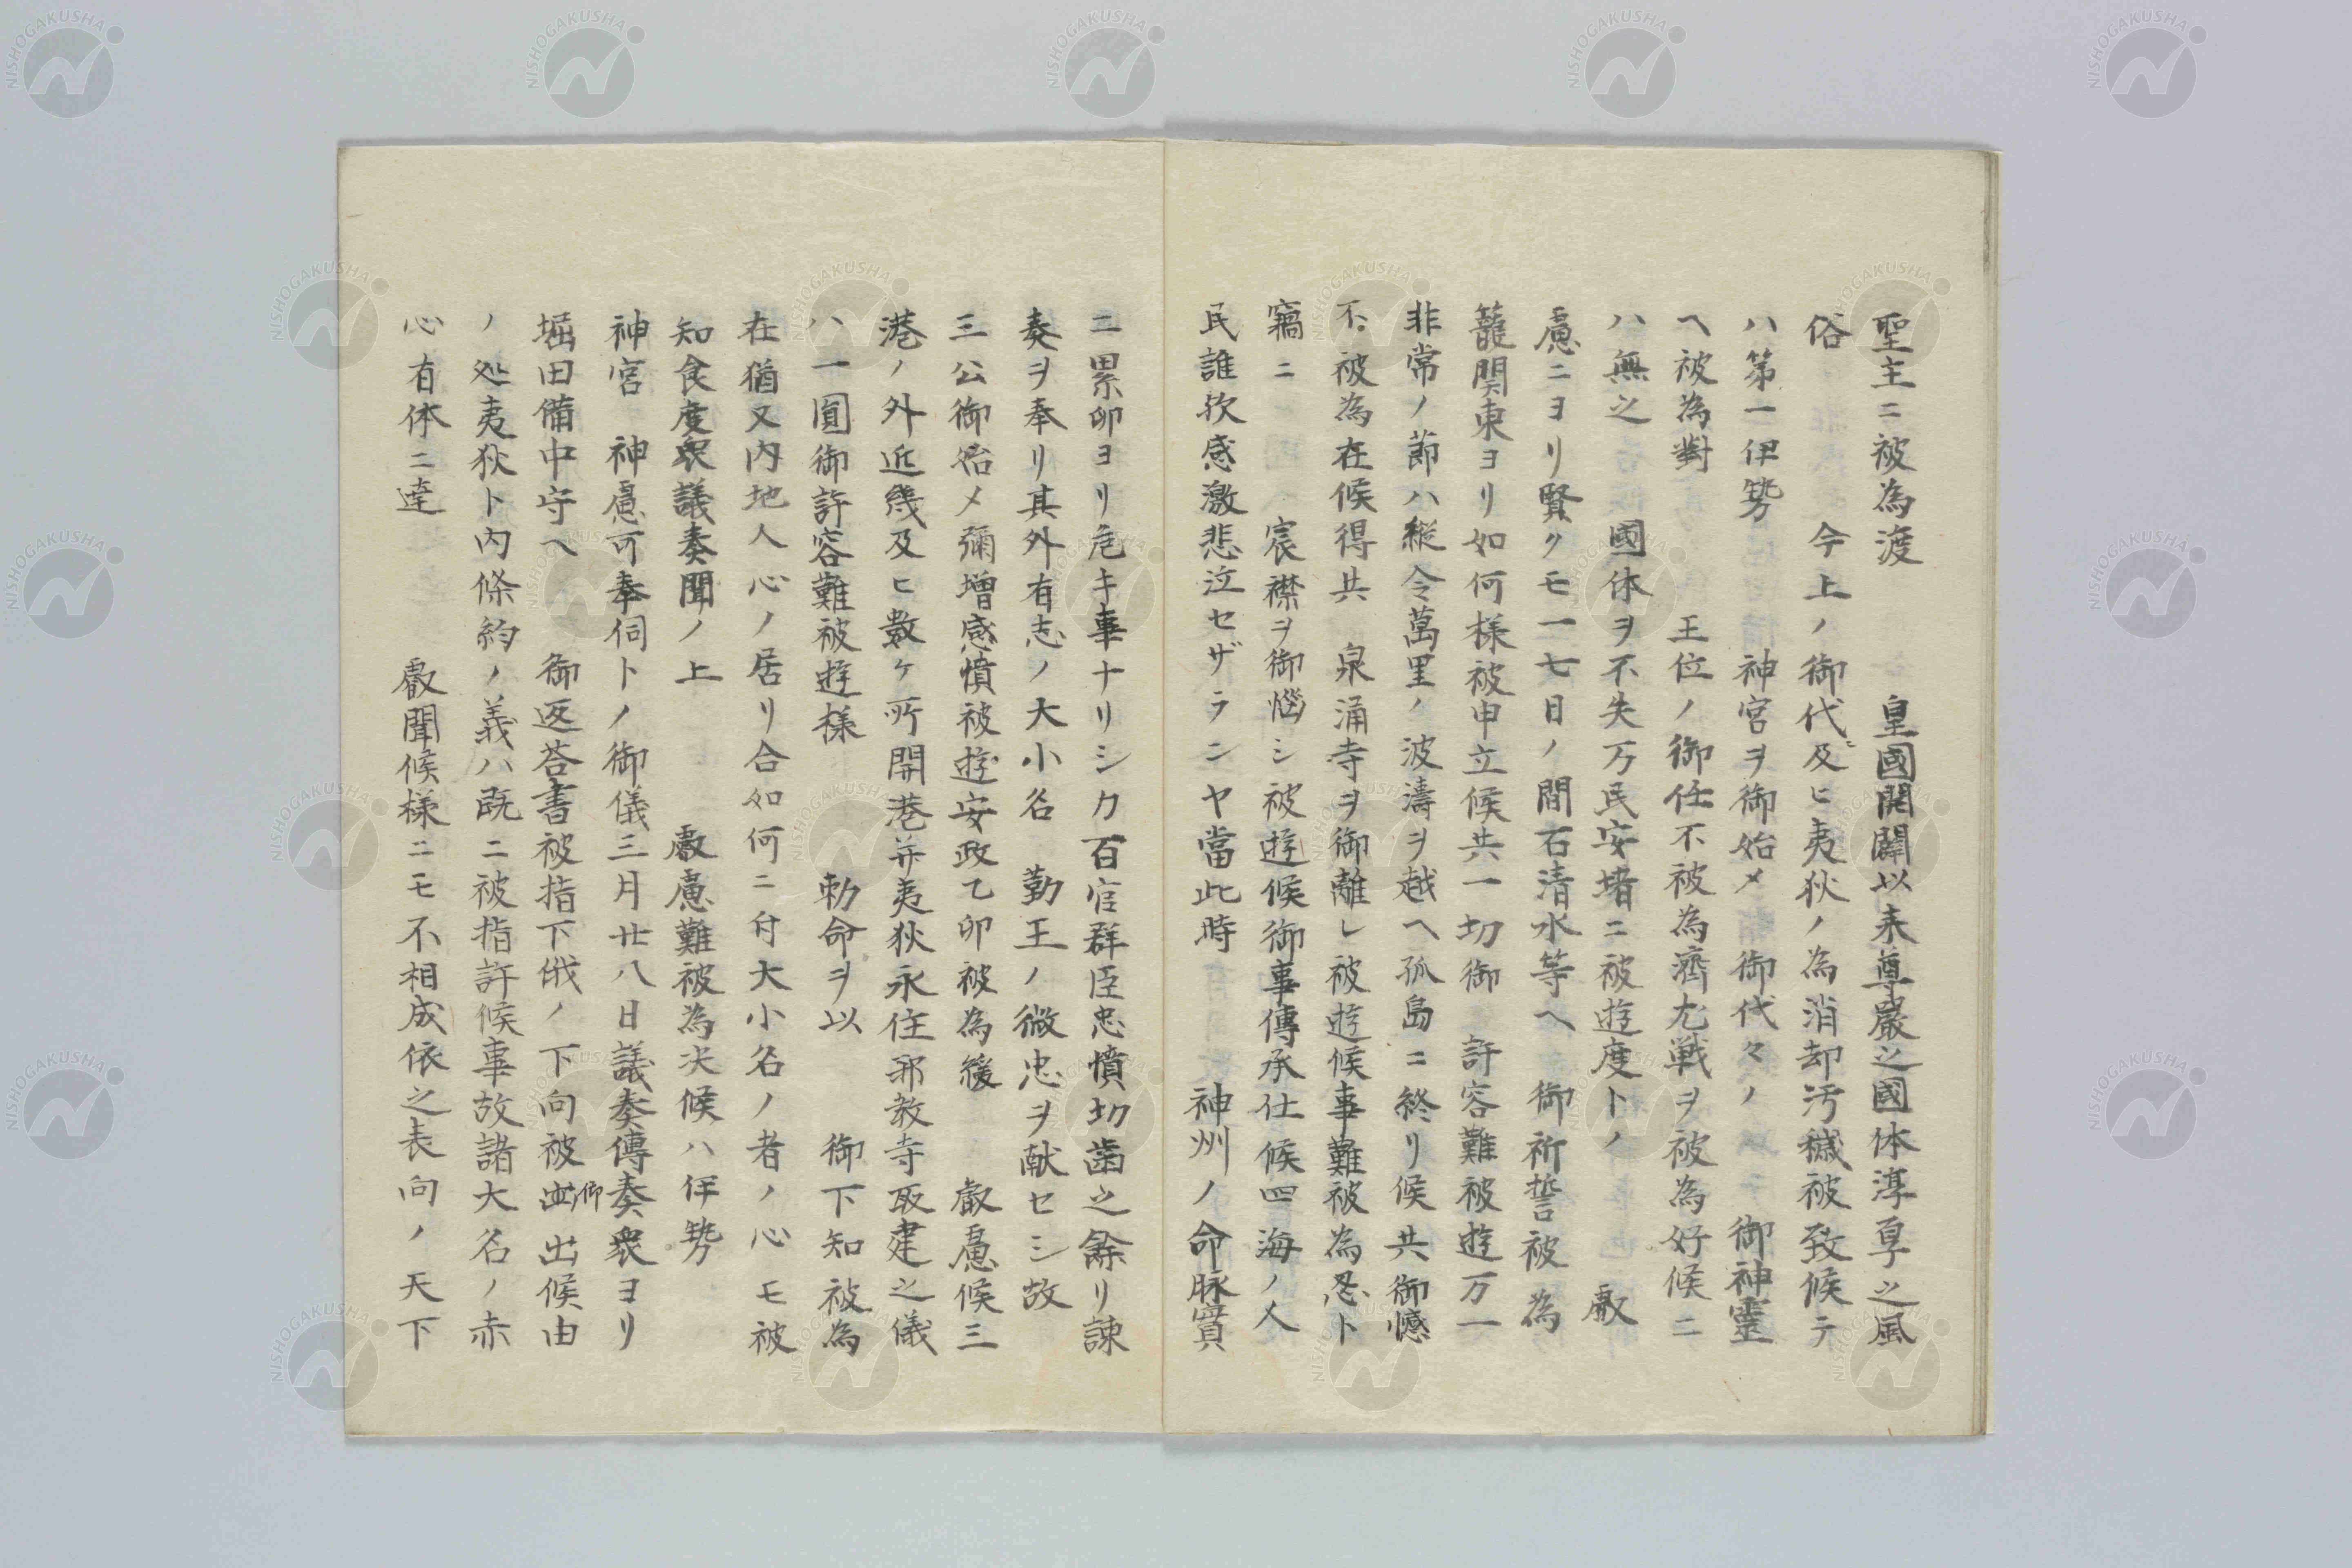 聖主ニ被為渡　皇國開闢以来尊嚴之國体淳厚之風
俗　今上ノ御代及ヒ夷狄ノ為消却汚穢被致候テ
ハ第一伊勢　神宮ヲ御始メ　御代々ノ　御神靈
ヘ被為對　王位ノ御任不被為濟尤戦ヲ被為好候ニ
ハ無之　國体ヲ不失万民安堵ニ被遊度トノ　叡
慮ニヨリ賢クモ一七日ノ間石清水等ヘ　御祈誓被為
籠関東ヨリ如何様被申立候共一切御　許容難被遊万一
非常ノ節ハ縦令萬里ノ波濤ヲ越ヘ孤島ニ終リ候共御憾
不被為在候得共　泉涌寺ヲ御離レ被遊候事難被為忍ト
竊ニ　宸襟ヲ御惱シ被遊候御事傳承仕候四海ノ人
民誰歟感激悲泣セザランヤ當此時　神州ノ命脉實
ニ累卵ヨリ危キ事ナリシカ百官群臣忠憤切歯之餘リ諌
奏ヲ奉リ其外有志ノ大小名　勤王ノ微忠ヲ献セシ故
三公御始メ彌増感憤被遊安政乙卯被為綬　叡慮候三
港ノ外近幾及ヒ數ケ所開港并夷狄永住邪教寺取建之儀
ハ一圓御許容難被遊様　勅命ヲ以　御下知被為
在猶又内地人心ノ居リ合如何ニ付大小名ノ者ノ心モ被
知食度衆議奏聞ノ上　叡慮難被為决候ハ伊勢
神宮　神慮可奉伺トノ御儀三月廿八日議奏傳奏衆ヨリ
堀田備中守ヘ　御返答書被指下俄ノ下向被御出候由
ノ処夷狄ト内條約ノ義ハ既ニ被指許候事故諸大名ノ赤
心有体ニ達　叡聞候様ニモ不相成依之表向ノ天下
NISHOGAKUSHA